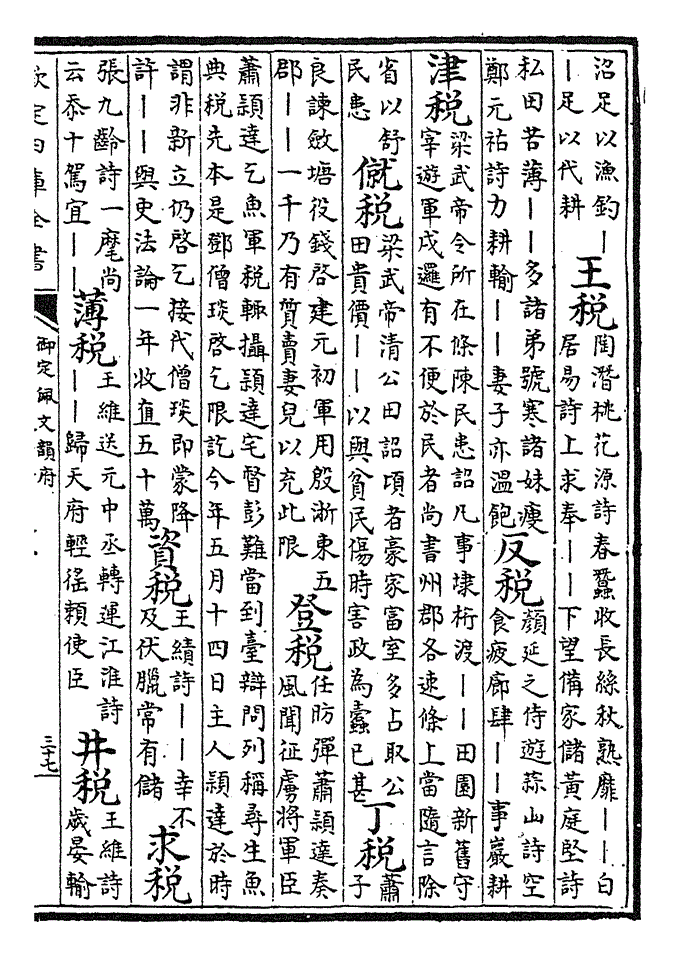 沼足以漁釣丨
丨足以代耕
王税
陶潛桃花源詩春蠶收長絲秋熟靡丨丨白
居易詩上求奉丨丨下望備家儲黄庭堅詩
私田苦薄丨丨多諸弟號寒諸妹瘦
鄭元祐詩力耕輸丨丨妻子亦溫飽
反税
顔延之侍遊蒜山詩空
食疲廊肆丨丨事巖耕
津税
梁武帝令所在條陳民患詔凡事埭桁渡丨丨田園新舊守
宰遊軍戍邏有不便於民者尚書州郡各速條上當隨言除
省以舒
民患
僦税
梁武帝清公田詔頃者豪家富室多占取公
田貴價丨丨以與貧民傷時害政為蠹已甚
丁税
蕭
子
良諫斂塘役錢啓建元初軍用殷浙東五
郡丨丨一千乃有質賣妻兒以充此限
登税
任昉彈蕭穎達奏
風聞征虜將軍臣
蕭穎達乞魚軍税輙攝穎達宅督彭難當到臺辯問列稱尋生魚
典税先本是鄧僧琰啓乞限訖今年五月十四日主人穎達於時
謂非新立仍啓乞接代僧琰即蒙降
許丨丨與史法論一年收直五十萬
資税
王績詩丨丨幸不
及伏臘常有儲
求税
張九齡詩一麾尚
云忝十駕宜丨丨
薄税
王維送元中丞轉運江淮詩
丨丨歸天府輕徭賴使臣
井税
王維詩
歲晏輸
欽定四庫全書
御定佩文韻府
三十七